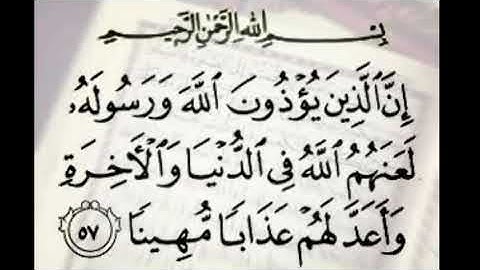 بِسْمِ اللَّهِ الرَّحْمَٰنِ الرَّحِيمِ
إِنَّ ٱلَّذِينَ يُؤْذُونَ ٱللَّهَ وَرَسُولَهُۥ
لَعَنَهُمُ ٱللَّهُ فِى ٱلدُّنْيَا وَٱلْأَخِرَةِ
وَأَعَدَّ لَهُمْ عَذَابًا مُّهِينًا ٥٧